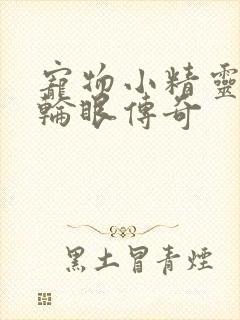 寵物小精靈
輪眼傳奇
黑土冒青煙